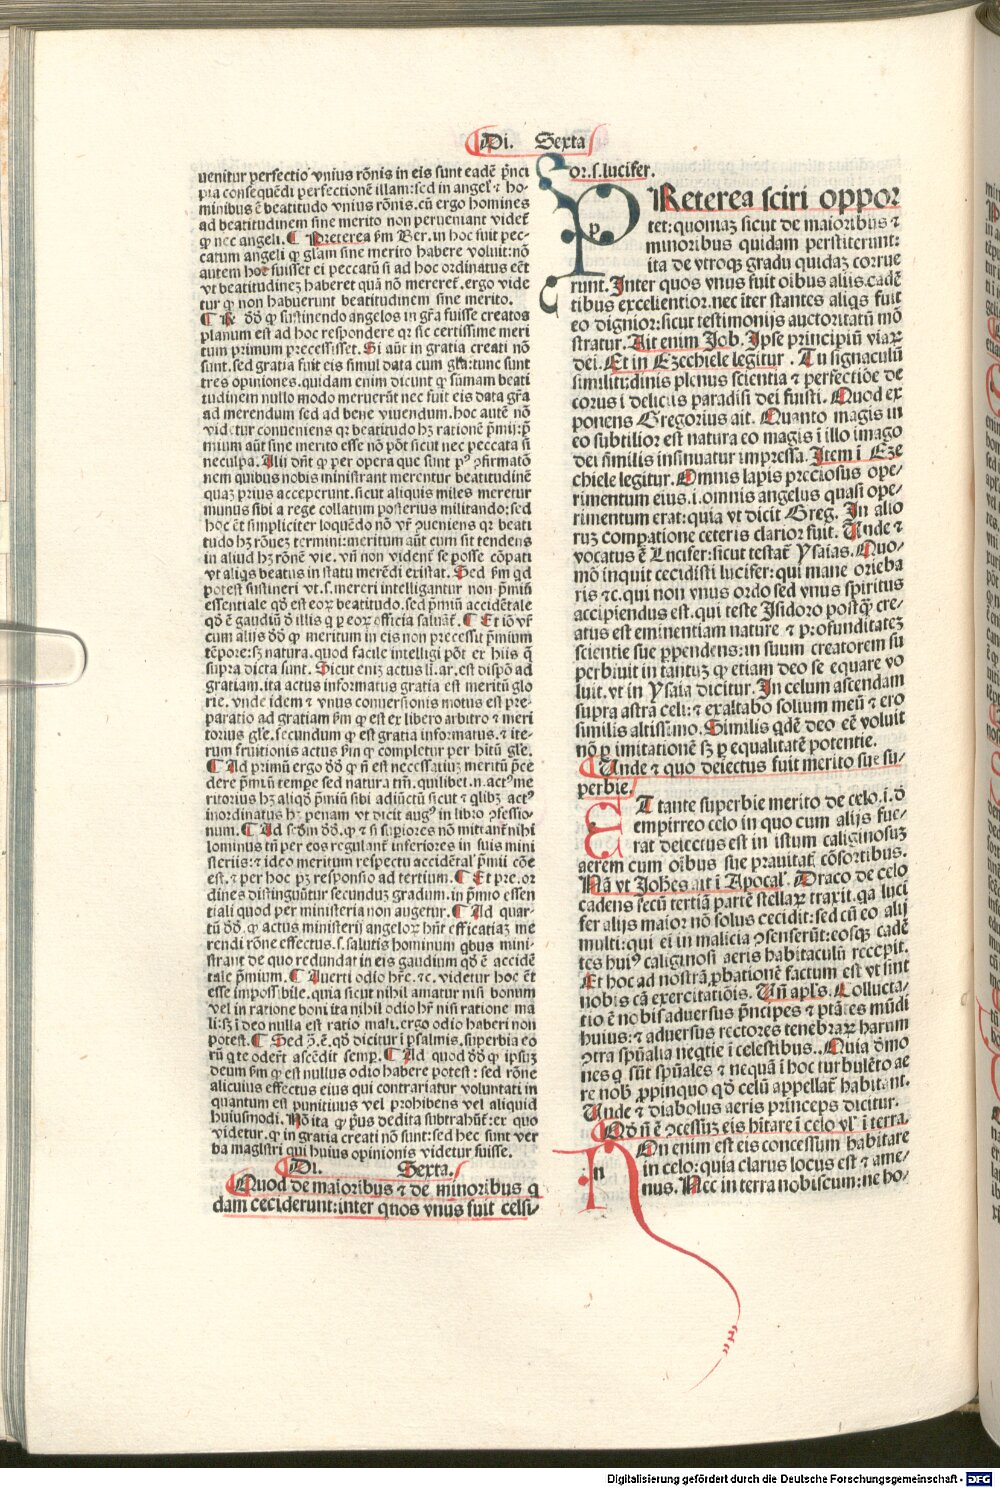 Di. Sexta
uenitur perfectio vnius rōnis in eis sunt eadē pͥnci
pia consequēdi perfectionē illam: sed in angeľ ⁊ ho-
minibus ē beatitudo vnius rōnis. cū ergo homines
ad beatitudinem sine merito non perueniant videt᷑
ꝙ nec angeli. ¶ Preterea ẜm Ber. in hoc fuit pec-
catum angeli ꝙ gl̄am sine merito habere voluit: nō
autem hoc fuisset ei peccatū si ad hoc ordinatus eēt
vt beatitudinez haberet quā nō mereret᷑. ergo vide
tur ꝙ non habuerunt beatitudinem sine merito.
¶ Rͦ dd̄ ꝙ sustinendo angelos in gr̄a fuisse creatos
planum est ad hoc respondere qꝛ sic certissime meri
tum primum precessisset. Si aūt in gratia creati nō
sunt. sed gratia fuit eis simul data cum gl̄a: tunc sunt
tres opiniones. quidam enim dicunt ꝙ summam beati
tudinem nullo modo meruerūt nec fuit eis data gr̄a
ad merendum sed ad bene viuendum. hoc autē nō
videtur conueniens qꝛ beatitudo hꝫ rationē pͥmij: pͥ
mium aūt sine merito esse nō pōt sicut nec peccata si
ne culpa. Alij dn̄t ꝙ per opera que sunt pꝰ ꝯfirmatō
nem quibus nobis ministrant merentur beatitudinē
quaꝫ prius acceperunt. sicut aliquis miles meretur
munus sibi a rege collatum posterius militando: sed
hoc ēt simpliciter loquēdo nō vr̄ ꝯueniens qꝛ beati
tudo hꝫ rōneꝫ termini: meritum aūt cum sit tendens
in aliud hꝫ rōnē vie. vn̄ non vident᷑ se posse cōpati
vt aliqͥs beatus in statu merēdi existat. Sed ẜm qd
potest sustineri vt. s. mereri intelligantur non pͥmiū
essentiale qd̄ est eoꝝ beatitudo. sed pͥmiū accidētale
qd̄ ē gaudiū d̄ illis q̄ ꝑ eoꝝ officia saluāt᷑. ¶ Et iō vr̄
cum alijs dd̄ ꝙ meritum in eis non precessit pͥmium
tēpore: sꝫ natura. quod facile intelligi pōt ex hiis q̄
supra dicta sunt. Sicut eniꝫ actus li. ar. est dispō ad
gratiam. ita actus informatus gratia est meritū glo
rie. vnde idem ⁊ vnus conuersionis motus est pre-
paratio ad gratiam ẜm ꝙ est ex libero arbitro ⁊ meri
torius gl̄e. secundum ꝙ est gratia informatus. ⁊ ite-
rum fruitionis actus ẜm ꝙ completur per hītū gl̄e.
¶ Ad primū ergo dd̄ ꝙ n̄ est necessariuꝫ meritū pͥce
dere pͥmiū tempe sed natura tm̄. quilibet. n. actꝰ me
ritorius hꝫ aliqd̄ pͥmiū sibi adiūctū sicut ⁊ qͥlibꝫ actꝰ
inordinatus hꝫ penam vt dicit augꝰ in libro ꝯfessio
num. ¶ Ad scd̄m dd̄. ꝙ ⁊ si suꝑiores nō mittant᷑ nihi
lominus tn̄ per eos regulant᷑ inferiores in suis mini
sterijs: ⁊ ideo meritum respectu accidētaľ pͥmii cōe
est. ⁊ per hoc pꝫ responsio ad tertium. ¶ Et pre. or
dines distinguūtur secunduꝫ gradum. in pͥmio essen
tiali quod per ministeria non augetur. ¶ Ad quar-
tū dd̄. ꝙ actus ministerij angeloꝝ hn̄t efficatiaꝫ me
rendi rōne effectus. s. salutis hominum qͥbus mini-
strant de quo redundat in eis gaudium qd̄ ē accidē
tale pͥmium. ¶ Auerti odio hr̄e. ⁊c. videtur hoc ēt
esse impossibile. quia sicut nihil amatur nisi bonum
vel in ratione boni ita nihil odio hr̄ nisi ratione ma
li: sꝫ ī deo nulla est ratio mali. ergo odio haberi non
potest. ¶ Sed ꝯ. ē. qd̄ dicitur ī psalmis. superbia eo
rū q̄ te oderūt ascēdit semꝑ. ¶ Ad quod dd̄ ꝙ ipsuꝫ
deum ẜm ꝙ est nullus odio habere potest: sed rōne
alicuius effectus eius qui contrariatur voluntati in
quantum est punitiuus vel prohibens vel aliquid
huiusmodi. Nō ita ꝙ pͥus dedita subtrahūt᷑: ex quo
videtur. ꝙ in gratia creati nō sunt: sed hec sunt ver
ba magistri qui huius opinionis videtur fuisse.
Di. Sexta.
¶ Quod de maioribus ⁊ de minoribus q
dam ceciderunt: inter quos vnus fuit celsi-
or. s. lucifer.
PReterea sciri oppor
tet: quoniaꝫ sicut de maioribus ⁊
minoribus quidam perstiterunt:
ita de vtroqꝫ gradu quidaꝫ corrue
runt. Inter quos vnus fuit oībus aliis cadē
tibus excelientior. nec īter stantes aliqͥs fuit
eo dignior: sicut testimonijs auctoritatū mō
stratur. Ait enim Job. Ipse principiū viaꝝ
dei. Et in Ezechiele legitur. Tu signaculū
similitudinis plenus scientia ⁊ perfectiōe de
corus ī delicijs paradisi dei fuisti. Quod ex
ponens Gregorius ait. Quanto magis in
eo subtilior est natura eo magis ī illo imago
dei similis insinuatur impressa. Item ī Eze
chiele legitur. Omnis lapis preciosus ope-
rimentum eius. i. omnis angelus quasi ope-
rimentum erat: quia vt dicit Greg. In alio
ruꝫ compatione ceteris clarior fuit. Unde ⁊
vocatus ē Lucifer: sicut testat᷑ Ysaias. Quo-
mō inquit cecidisti lucifer: qui mane orieba
ris ⁊c. qui non vnus ordo sed vnus spiritus
accipiendus est. qui teste Isidoro postqͣꝫ cre-
atus est eminentiam nature ⁊ profunditateꝫ
scientie sue ꝑpendens: in suum creatorem su
perbiuit in tantuꝫ ꝙ etiam deo se equare vo
luit. vt in Ysaia dicitur. In celum ascendam
supra astra celi: ⁊ exaltabo solium meū ⁊ ero
similis altissimo. Similis qd̄ē deo eē voluit
nō ꝑ imitationē sꝫ ꝑ equalitatē potentie.
¶ Unde ⁊ quo deiectus fuit merito sue su-
perbie.
ET tante superbie merito de celo. i. d̄
empirreo celo in quo cum alijs fue-
rat deiectus est in istum caliginosuꝫ
aerem cum oībus sue prauitat᷑ cōsortibus.
Nā vt Johēs ait ī Apocaľ. Draco de celo
cadens secū tertiā partē stellaꝝ traxit. qꝛ luci
fer alijs maior nō solus cecidit: sed cū eo alij
multi: qui ei in malicia ꝯsenserūt: eosqꝫ cadē
tes huiꝰ caliginosi aeris habitaculū recepit.
Et hoc ad nostrā ꝓbationē factum est vt sint
nobis cā exercitatiōis. Un̄ apl̄s. Collucta-
tio ē nobis aduersus pͥncipes ⁊ ptātes mūdi
huius: ⁊ aduersus rectores tenebraꝝ harum
ꝯtra spūalia neqͥtie ī celestibus.. Quia dͤmo
nes q̄ sūt spūales ⁊ nequā ī hoc turbulēto ae
re nob̄ ꝓpinquo qd̄ celū appellat᷑ habitant.
Unde ⁊ diabolus aeris princeps dicitur.
¶ Qd̄ nō ē ꝯcessuꝫ eis hītare ī celo vľ ī terra.
NOn enim est eis concessum habitare
in celo: quia clarus locus est ⁊ ame-
nus. Nec in terra nobiscum: ne ho-
Digitalisierung gefördert durch die Deutsche Forschungsgemeinschaft - DFG